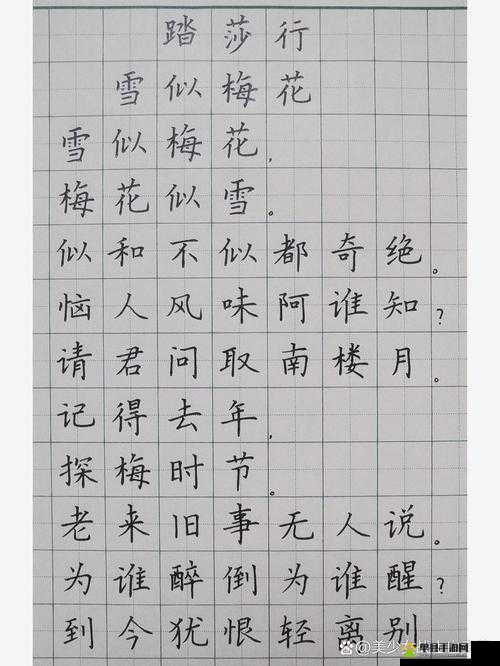 踏莎行
雪似梅花
雪似梅花,
梅花似雪。
似和不似都奇绝。
恼人风味阿谁知?
请君问取南楼月。
记得去年,
探梅时节。
老来旧事无人说。
为谁醉倒为谁醒?
到今犹恨轻离别